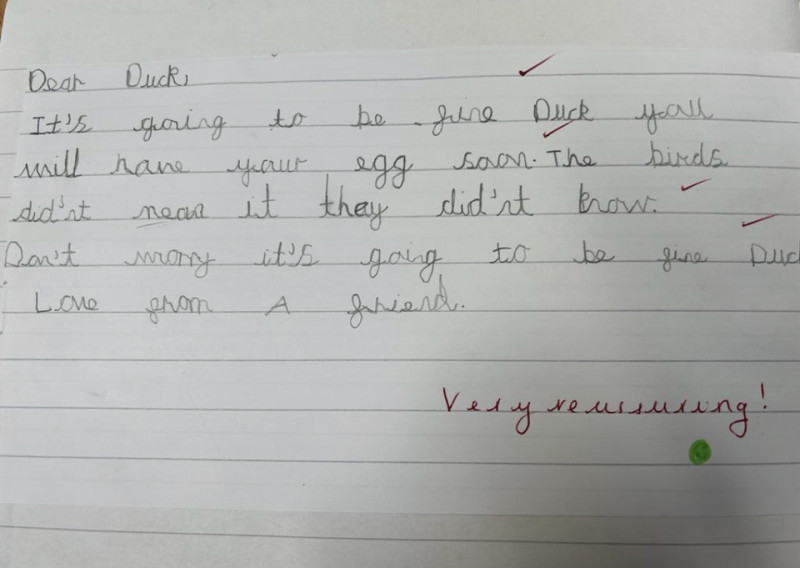 Dear Duck,
It's going to be fine Duck you
will have your egg soon. The birds
did'nt mean it they did'nt know.
Don't worry it's going to be fine Duck
Love from A friend.
Very reassuring!